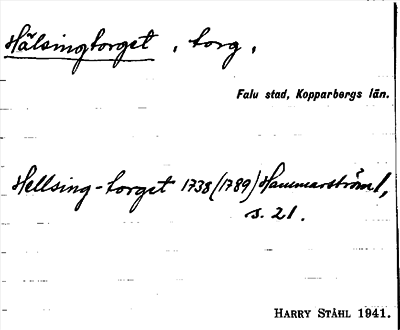 Hälsingtorget, torg.
Falu stad, Kopparbergs län.
Hellsing-torget 1738 (1789) Hammarström 1,
s. 21.
HARRY STÅHL 1941.